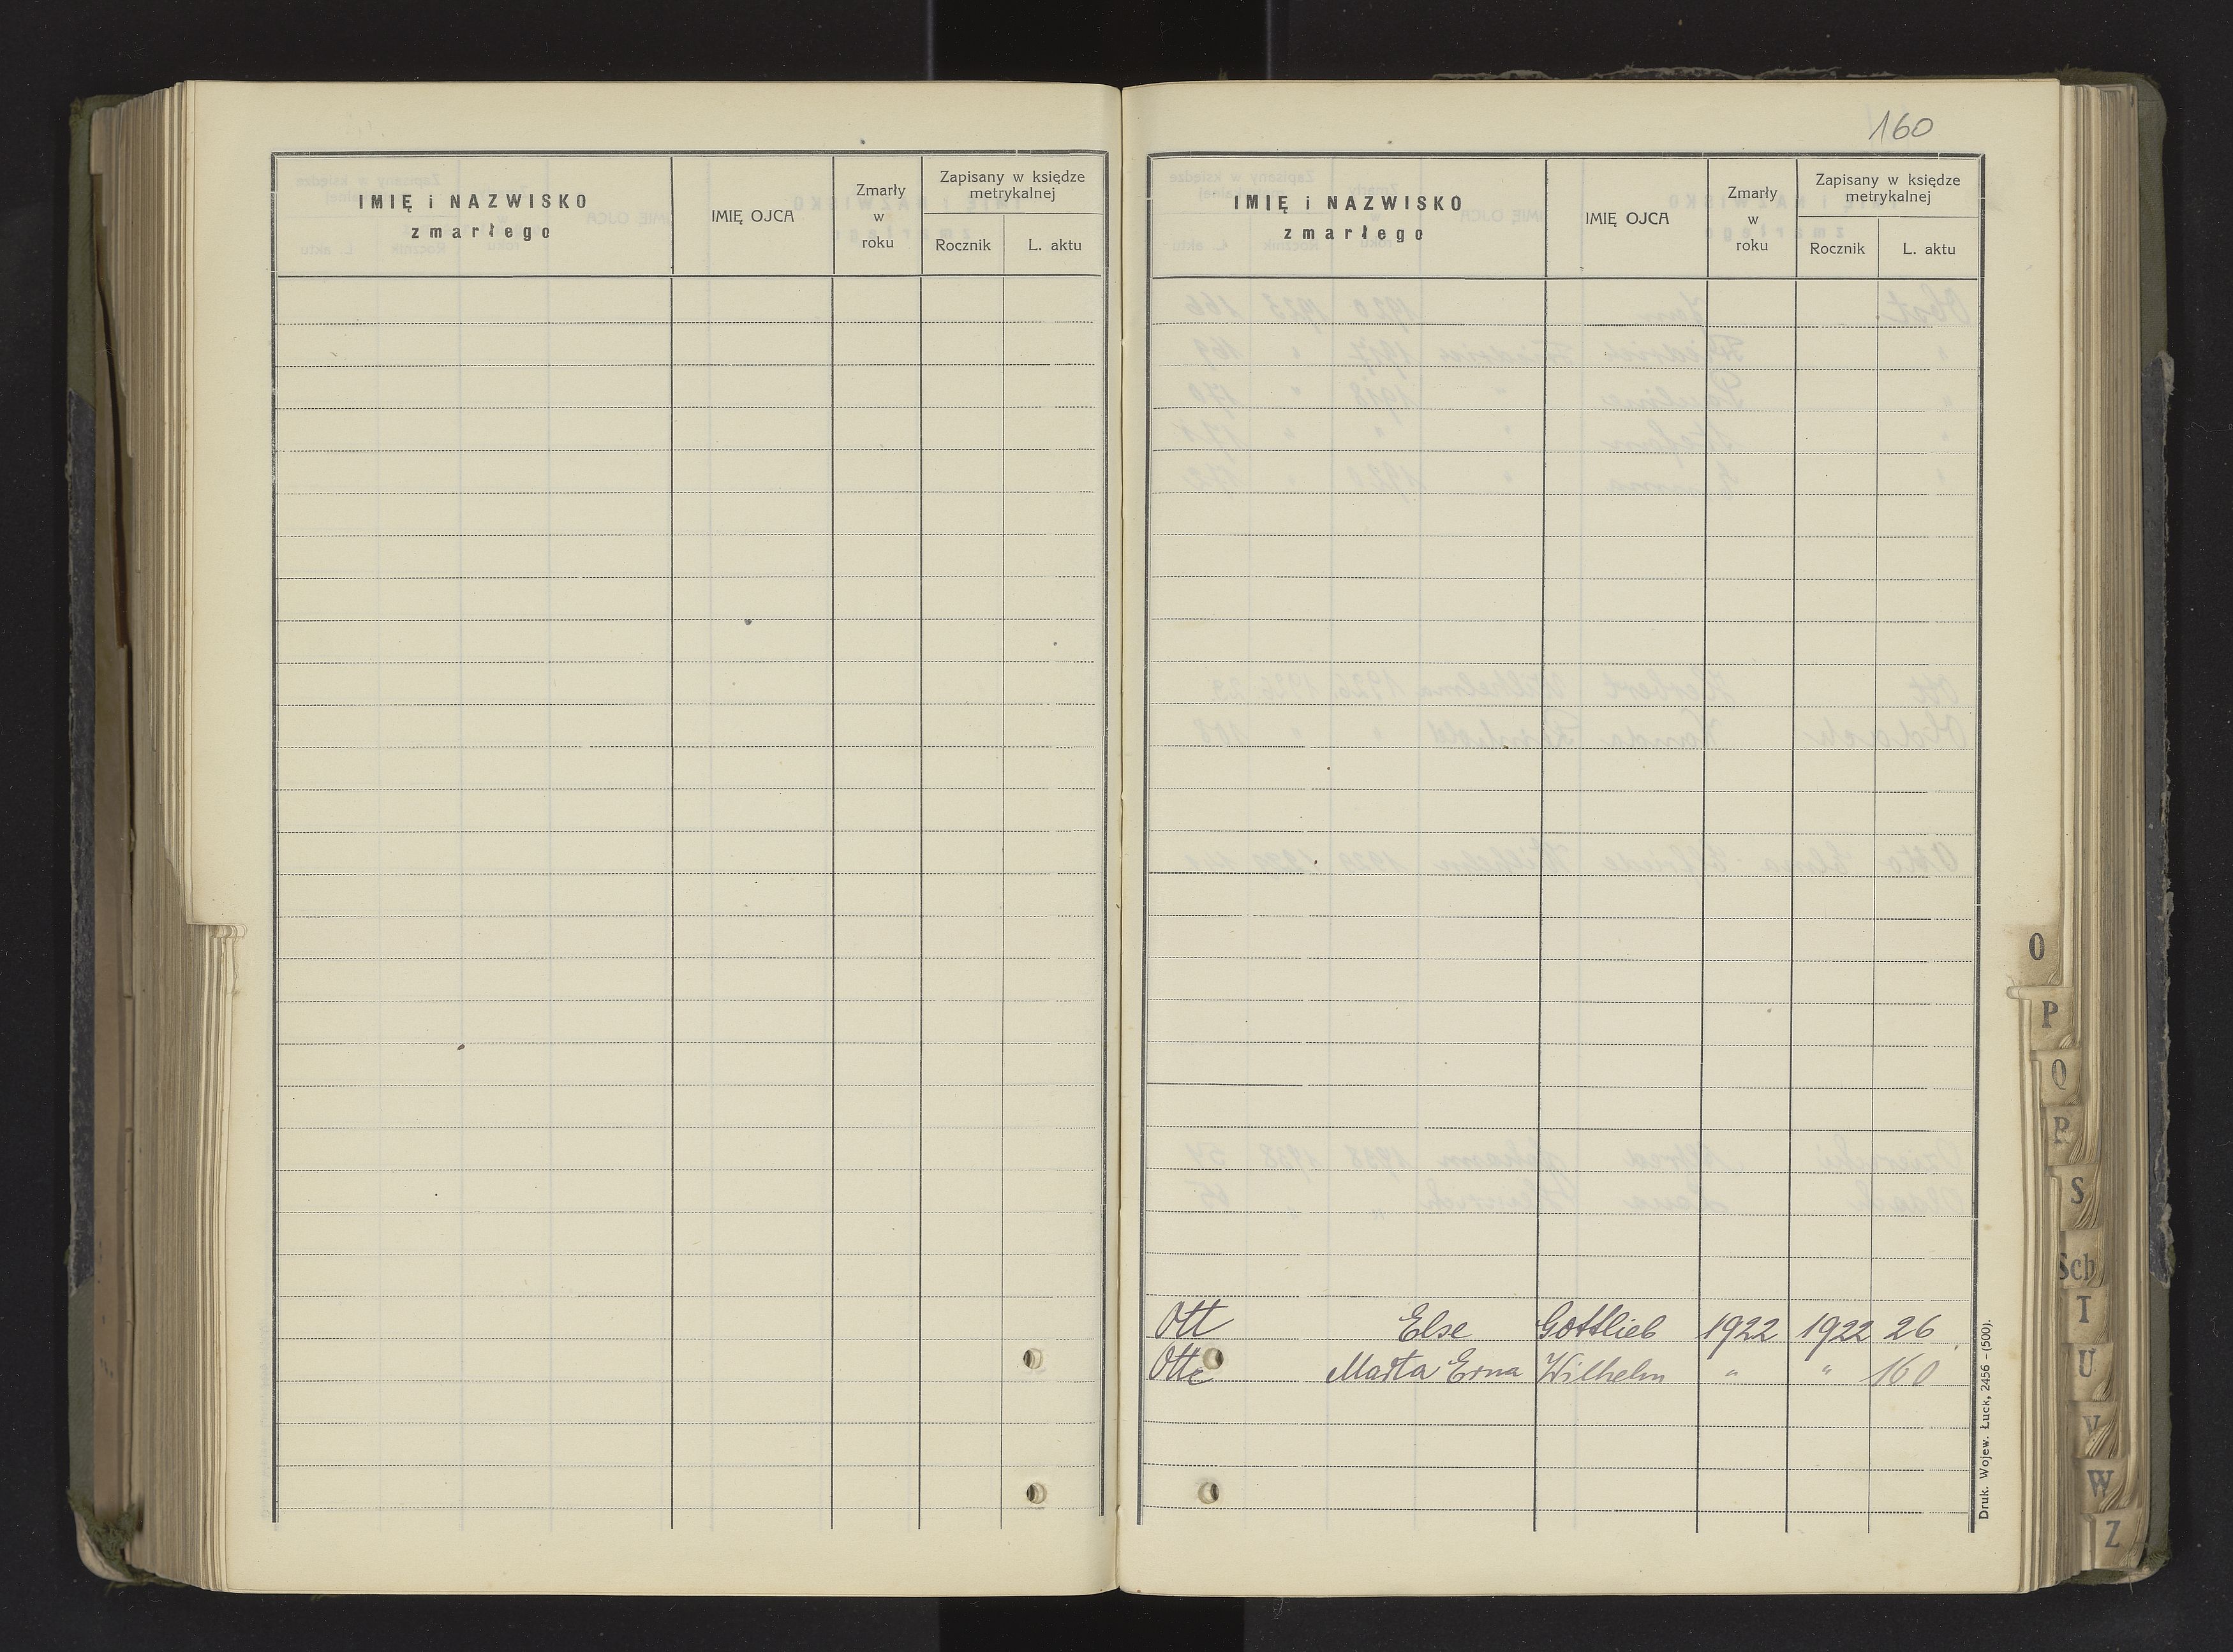 IMIĘ i NAZWISKO
zmarłego
IMIĘ OJCA
Zmarły
w
roku
Zapisany w księdze
metrykalnej
Rocznik
L. aktu
160
IMIĘ i NAZWISKO
zmarłego
IMIĘ OJCA
Zmarły
w
roku
Zapisany w księdze
metrykalnej
Rocznik
L. aktu
Ott Else Gottlieb 1922 1922 26
Otte Marta Erna Wilhelm " " 160
Druk. Wojew. Łuck, 2456 – (500).
O
P
Q
R
S
Sch
T
U
V
W
Z